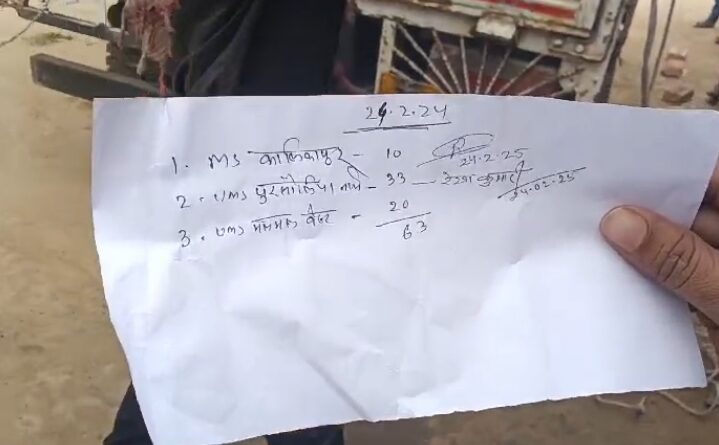 24.2.24
1. MS कालिकापुर - 10 24.2.25
2. UMS पुरसौलिया - 33 - रेखा कुमारी 24.02.25
3. UMS - 20
63